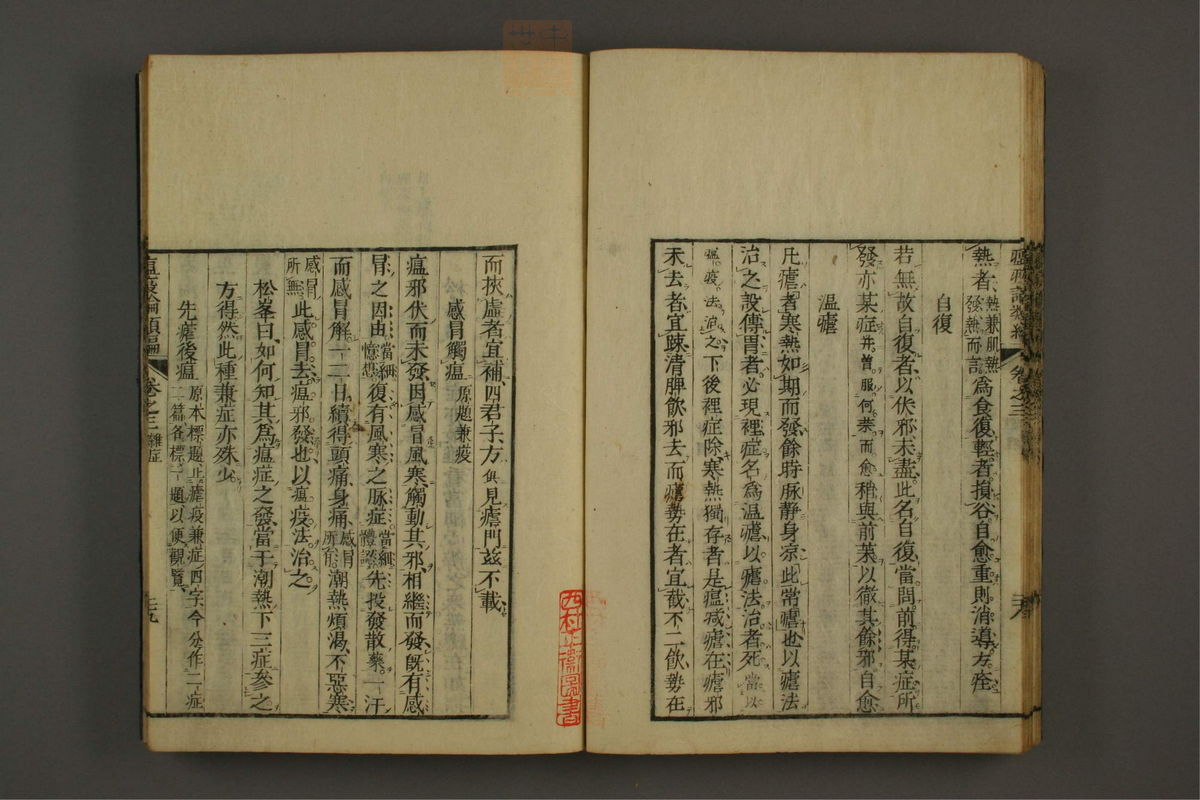 熱者熱兼肌熱發熱而言爲食復輕者損谷自愈重則消導方痊
自復
若無故自復者以伏邪未盡此名自復當問前得某症所
發亦某症并曾服何藥而愈稍與前藥以徹其餘邪自愈
温瘧
凡瘧者寒熱如期而發餘時脉靜身凉此常瘧也以瘧法
治之設傳胃者必現裡症名爲温瘧以瘧法治者死當以
瘟疫法治之下後裡症除寒熱獨存者是瘟减瘧在瘧邪
未去者宜踈清脾飲邪去而瘧勢在者宜截不二飲勢在
而挾虚者宜補四君子方俱見瘧門兹不載
感冒觸瘟原題兼疫
瘟邪伏而未發因感冒風寒觸動其邪相繼而發旣有感
冒之因由當細憶想復有風寒之脉症當細體認先投發散藥一汗
而感冒解一二日續得頭痛身痛感冒所有潮熱煩渴不惡寒
感冒所無此感冒去瘟邪發也以瘟疫法治之
松峯曰如何知其爲瘟症之發當于潮熱下三症參之
方得然此種兼症亦殊少
先瘧後瘟原本標題止瘧疫兼症四字今分作二症二篇各標一題以便觀覽
瘟疫論類編
卷之三雜症
西村
圖書